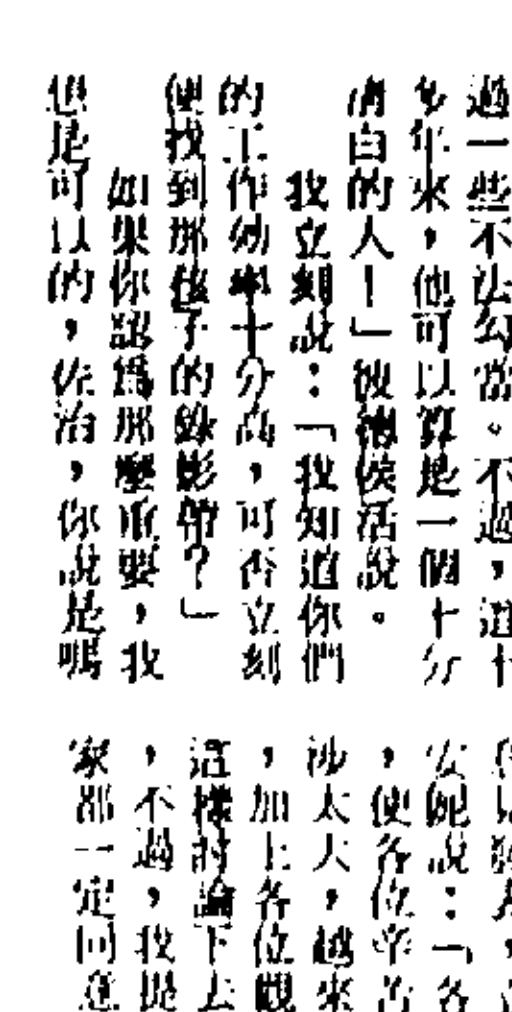 過一些不法勾當。不過，這十
多年來，他可以算是一個十分
清白的人！」彼德侯活說。
我立刻說：「我知道你們
的工作効率十分高，可否立刻
便找到那孩子的錄影帶？」
如果你認爲那麼重要，我
想是可以的，佐治，你說是嗎
安妮說：「各
，使各位辛苦
沙太太，越來
，加上各位觀
這樣討論下去
，不過，我提
家都一定同意